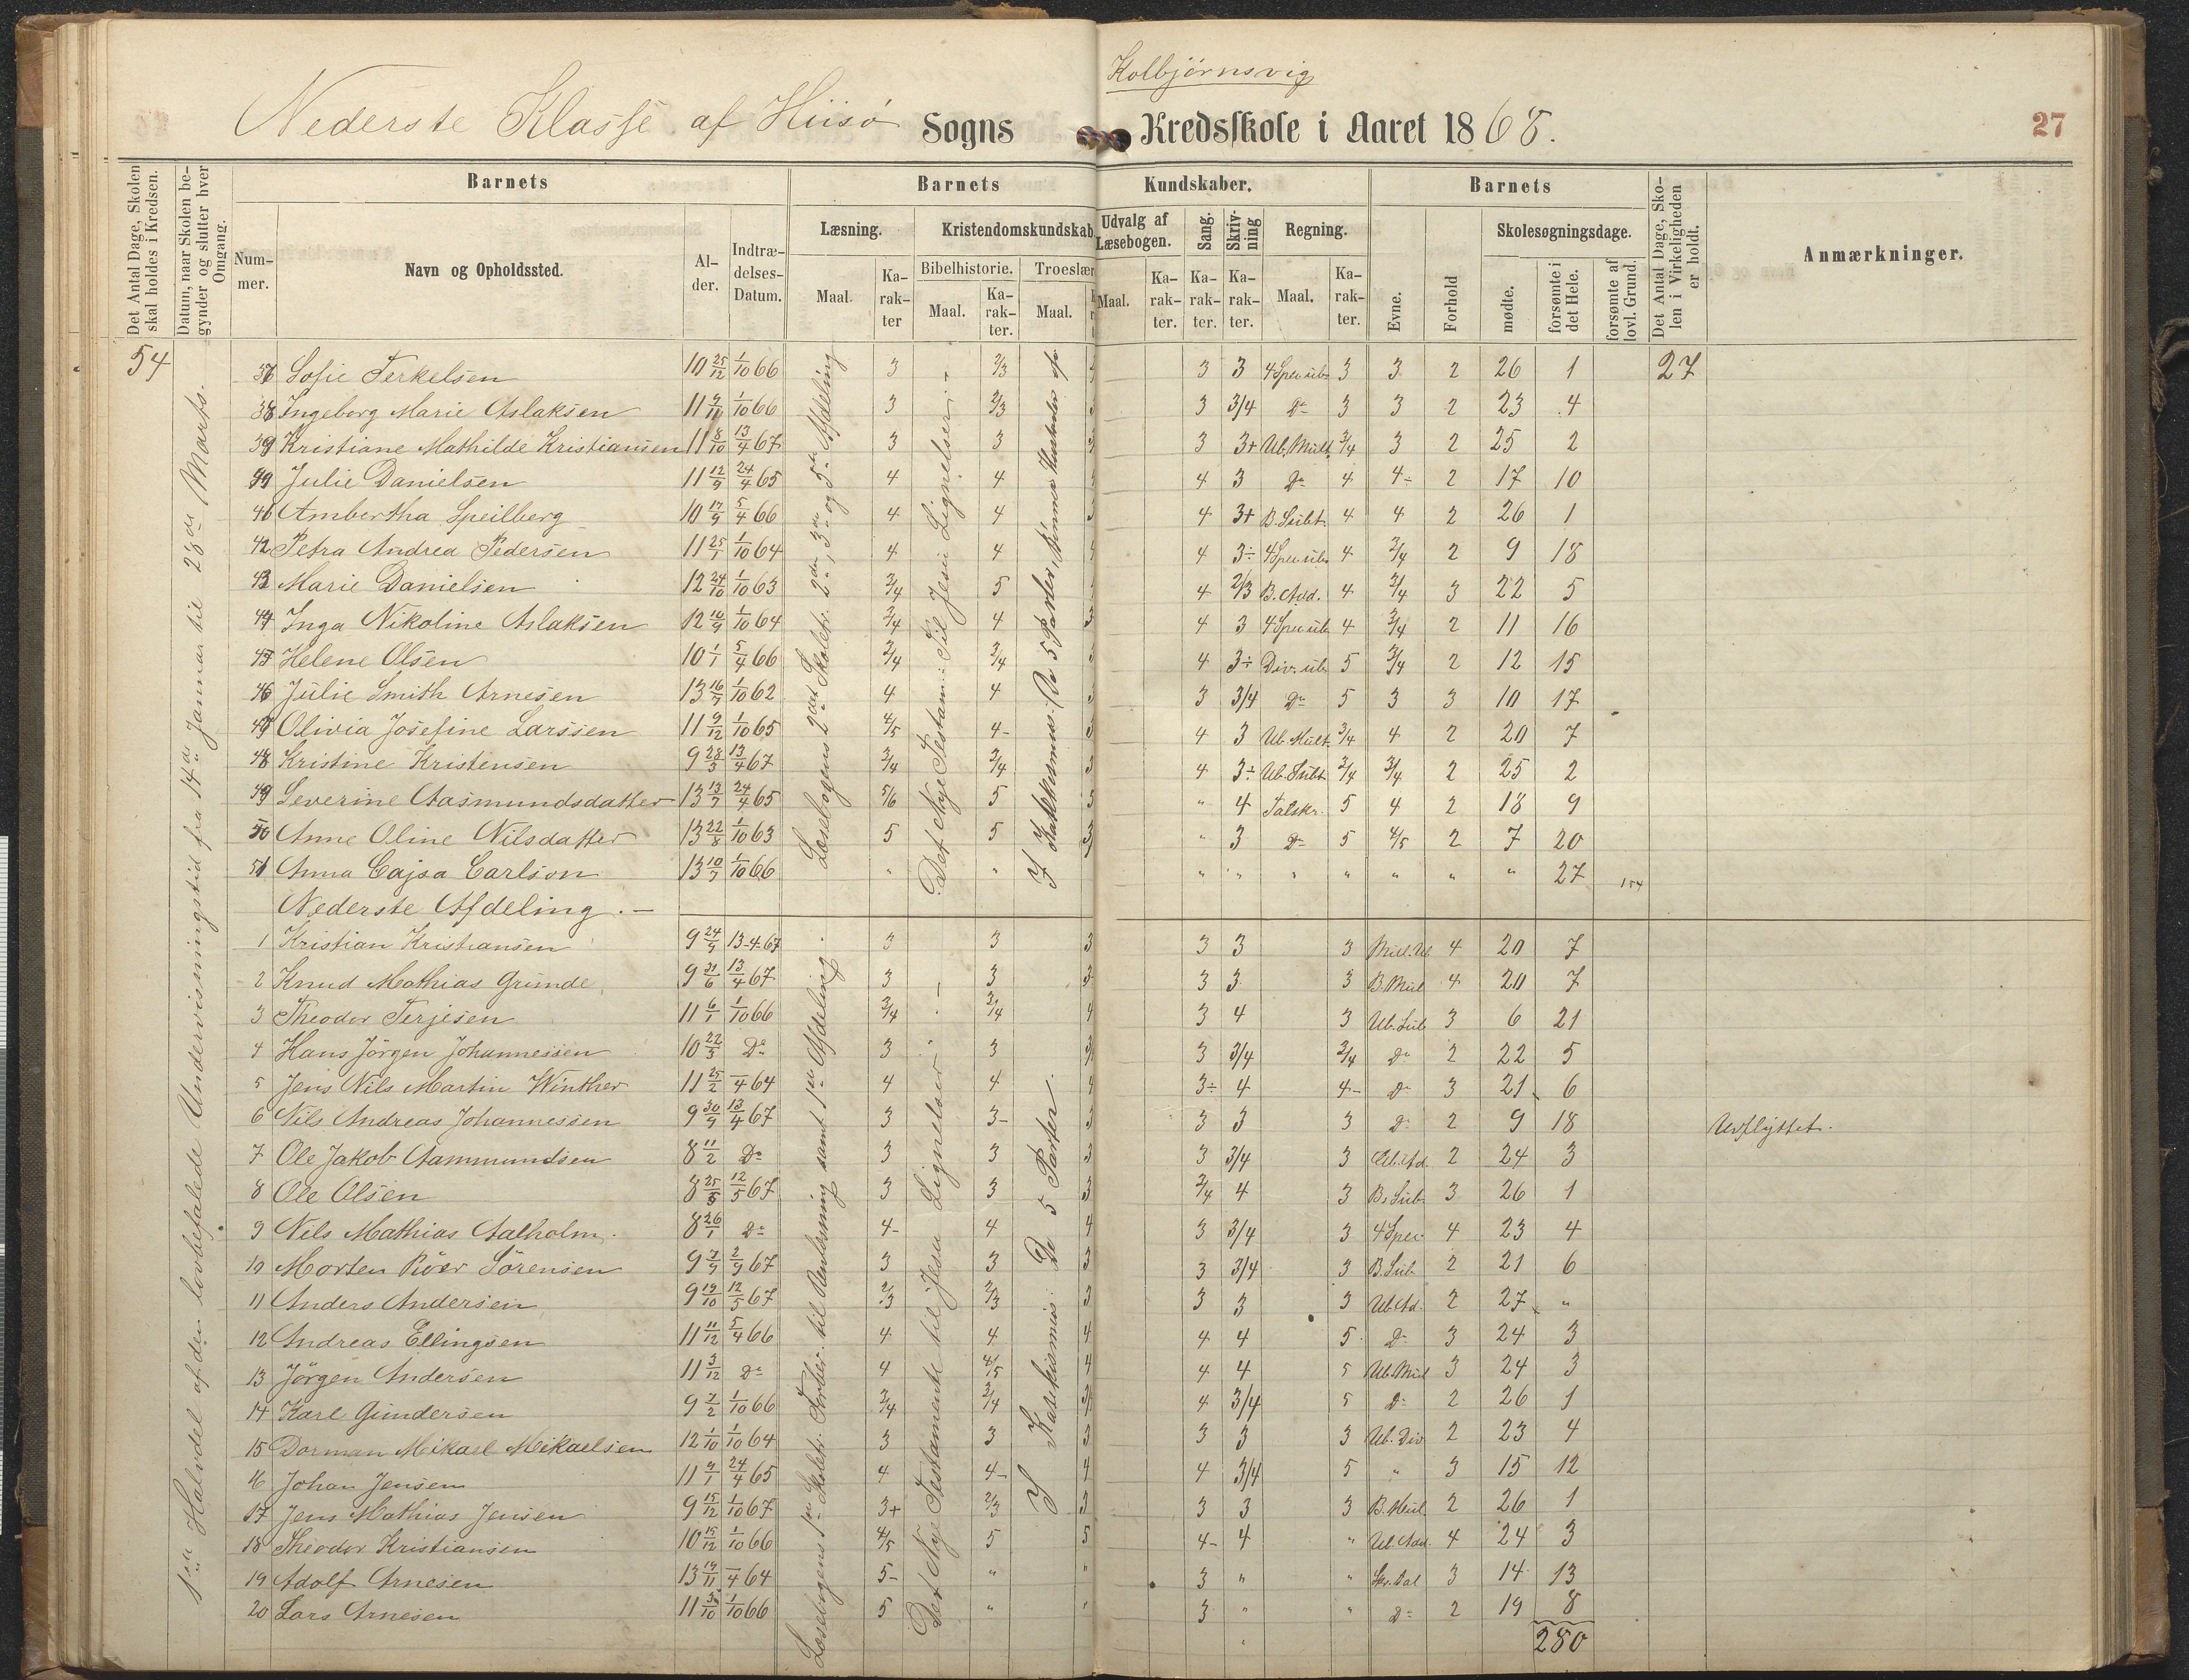 Kolbjörnsvig
Nederste Klasse af Hiisö Sogns Kredsskole i Aaret 1868.
27
Det Antal Dage, Skolen skal holdes i Kredsen.
Datum, naar Skolen begynder og slutter hver Omgang.
Barnets
Barnets Kundskaber.
Barnets
Det Antal Dage, Skolen i Virkeligheden er holdt.
Anmærkninger.
Nummer.
Navn og Opholdssted.
Alder.
Indtrædelses-Datum.
Læsning.
Kristendomskundskab
Udvalg af Læsebogen.
Sang.
Skrivning
Regning.
Evne.
Forhold
Skolesøgningsdage.
Bibelhistorie.
Troeslær
Maal.
Karakter
Maal.
Karakter.
Maal.
Maal.
Karakter.
Karakter.
Karakter.
Maal.
Karakter.
mødte.
forsømte i det Hele.
forsømte af lovl. Grund.
54
1ste Halvdel af den lovbefalede Undervisningstid fra 14de Januar til 28de Marts.
Læsebogens 2det Skoletr. 2den, 3die og 5te Afdeling
Det Nye Testam: Til Jesu Lignelser.
37 Sofie Terkelsen 10 25/12 1/10 66 3 2/3 3 3 4 Spec ub 3 3 2 26 1 27
38 Ingeborg Marie Aslaksen 11 9/11 1/10 66 3 2/3 3 3/4 Do 3 3 2 23 4
39 Kristiane Mathilde Kristiansen 11 8/10 13/4 67 3 3 3 3+ Ub. Mult. 3/4 3 2 25 2
Julie Danielsen 11 12/9 24/4 65 4 4 4 3 Do 4 4- 2 17 10
Ambertha Speilberg 10 17/9 5/4 66 4 4 4 3+ B. Subt. 4 4 2 26 1
42 Petra Andrea Pedersen 11 25/1 1/10 64 4 4 4 3÷ 4 Spec ub 4 3/4 2 9 18
43 Marie Danielsen 12 24/10 1/10 63 3/4 5 4 2/3 B. Add. 4 3/4 3 22 5
44 Inga Nikoline Aslaksen 12 10/9 1/10 64 3/4 4 4 3 4 Spec ub 4 3/4 2 11 16
45 Helene Olsen 10 1/1 5/4 66 3/4 3/4 4 3÷ Div. ub 5 3/4 2 12 15
46 Julie Smith Arnesen 13 16/7 1/10 62 4 4 3 3/4 Do 5 3 3 10 17
47 Olivia Josefine Larssen 11 9/12 1/10 65 4/5 4- 4 3 Ub. Mult. 3/4 4 2 20 7
48 Kristine Kristensen 9 28/3 13/4 67 3/4 3/4 4 3÷ Ub. Subt 3/4 3/4 2 25 2
49 Severine Aasmundsdatter 13 13/7 24/4 65 5/6 5 " 4 Talskr. 5 4 2 18 9
50 Anne Oline Nilsdatter 13 22/8 1/10 63 5 5 " 3 Do 5 4/5 2 7 20
51 Anna Cajsa Carlson 13 10/7 1/10 66 " " " " " " " " " 27 154
Nederste Afdeling.—
Det Nye Testamente til Jesu Lignelser
I Katekismus: De 5 Parter.
1 Kristian Kristiansen 9 24/9 13-4-67 3 3 3 3 3 3 Mult. Ub 4 20 7
2 Knud Mathias Grunde 9 21/6 13/4 67 3 3 3 3 3 3 B. Mul 4 20 7
3 Theodor Terjesen 11 6/1 1/10 66 3/4 3/4 4 3 4 3 Ub. Sub 3 6 21
4 Hans Jörgen Johannessen 10 22/3 Do 3 3 3 3/4 3/4 Do 2 22 5
5 Jens Nils Martin Winther 11 25/2 —/4 64 4 4 4 3÷ 4 4- Do 3 21 6
6 Nils Andreas Johannessen 9 30/9 13/4 67 3 3- 3 3 3 3 Do 2 9 18 Udflyttet.
7 Ole Jakob Aammundsen 8 11/2 Do 3 3 3 3 3/4 3 Ub. Ad. 2 24 3
8 Ole Olsen 8 25/5 12/5 67 3 3 3 3/4 4 3 B. Sub 3 26 1
9 Nils Mathias Aalholm. 8 26/1 Do 4- 4 4 3 3/4 3 4 Spec 4 23 4
10 Morten Röer Sörensen 9 7/9 2/9 67 3 3 3 3 3/4 3 B. Sub 2 21 6
11 Anders Andersen 9 19/10 12/5 67 2/3 2/3 3 3 3 3 Ub. Ad. 2 27 "
12 Andreas Ellingsen 11 11/12 5/4 66 4 4 4 4 4 5 Do 3 24 3
13 Jörgen Andersen 11 3/12 Do 4 4/5 4 4 4 5 Ub. Mul 3 24 3
14 Karl Gundersen 9 7/2 1/10 66 3/4 3/4 4 3/4 5 Do 2 26 1
15 Dorman Mikael Mikaelsen 12 1/10 1/10 64 3 3 3 3 3 3 Ub. Div 2 23 4
16 Johan Jensen 11 9/1 24/4 65 4 4- 4 4 3/4 5 " 3 15 12
17 Jens Mathias Jensen 9 15/12 1/10 67 3+ 2/3 3 3 3 3 B. Mul 2 26 1
18 Theodor Kristiansen 10 15/12 1/10 66 4/5 5 5 4- 4 " Ub. Add. 4 24 3
19 Adolf Arnesen 13 19/11 —/4 64 5- " " 3 " " Skr. Tal 3 14 13
20 Lars Arnesen 11 3/10 1/10 66 5 " 3 " " Do 2 19 8
280